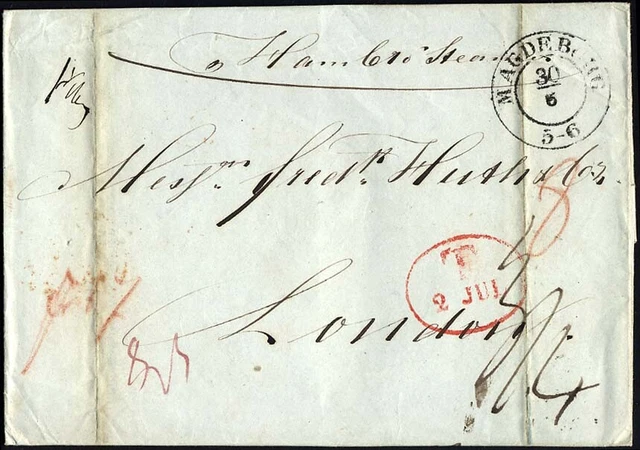 p Hambro' Steam
MAGDEBURG
30
6
5-6
Messrs. Fredk. Huth & Co.
T
2 JUL
London